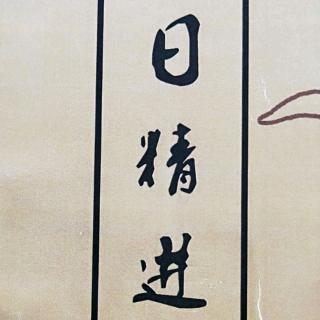 日精进